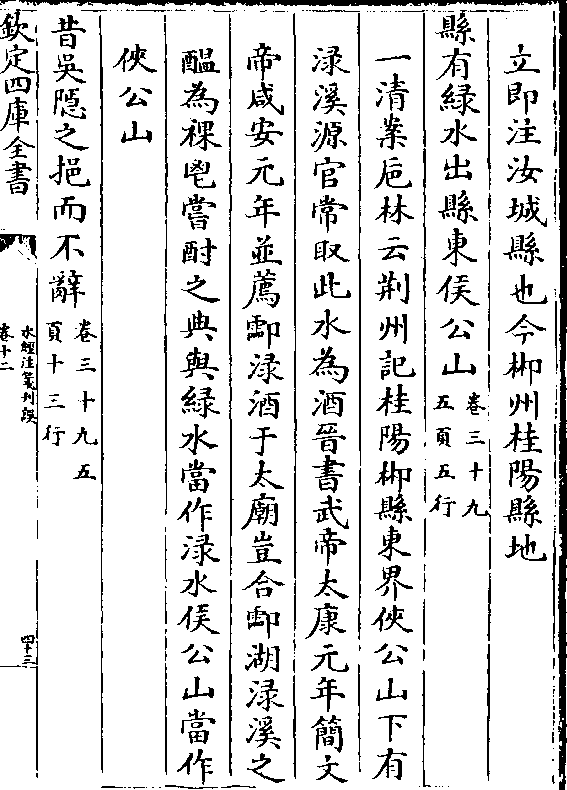 立即注汝城縣也今郴州桂陽縣地
縣有緑水出縣東侯公山
卷三十九
五頁五行
一清案巵林云荆州記桂陽郴縣東界俠公山下有
渌溪源官常取此水為酒晉書武帝太康元年簡文
帝咸安元年並薦酃渌酒于太廟豈合酃湖渌溪之
醖為祼鬯嘗酎之典與緑水當作渌水侯公山當作
俠公山
昔吳隠之挹而不辭
卷三十九五
頁十三行
欽定四庫全書
水經注箋刋誤
卷十二
四十三